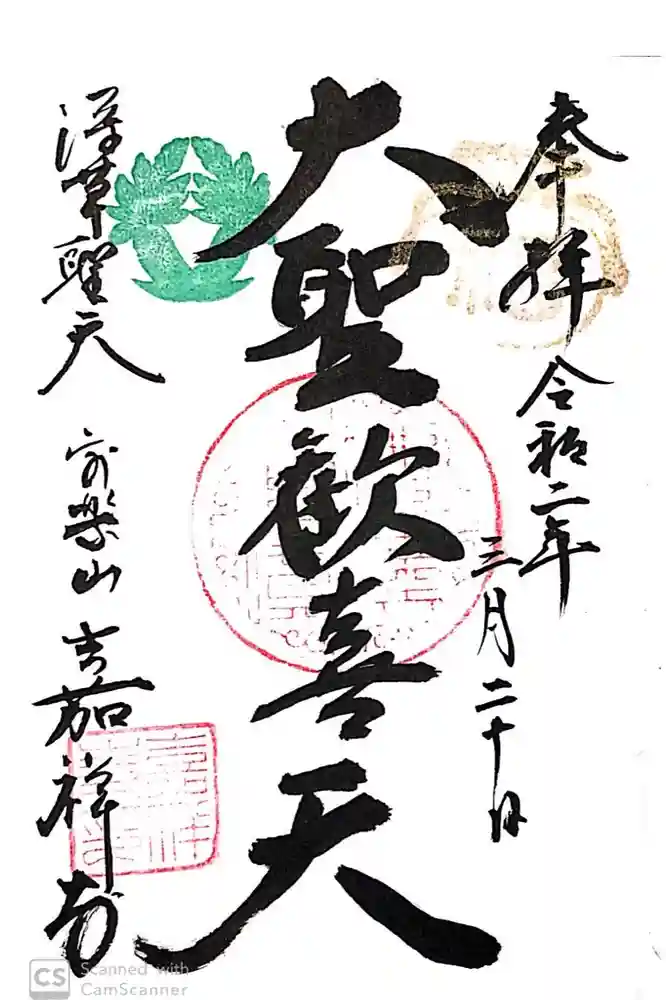 奉拝 令和二年
三月二十日
大聖歓喜天
深草聖天
嘉祥寺
CS Scanned with
CamScanner